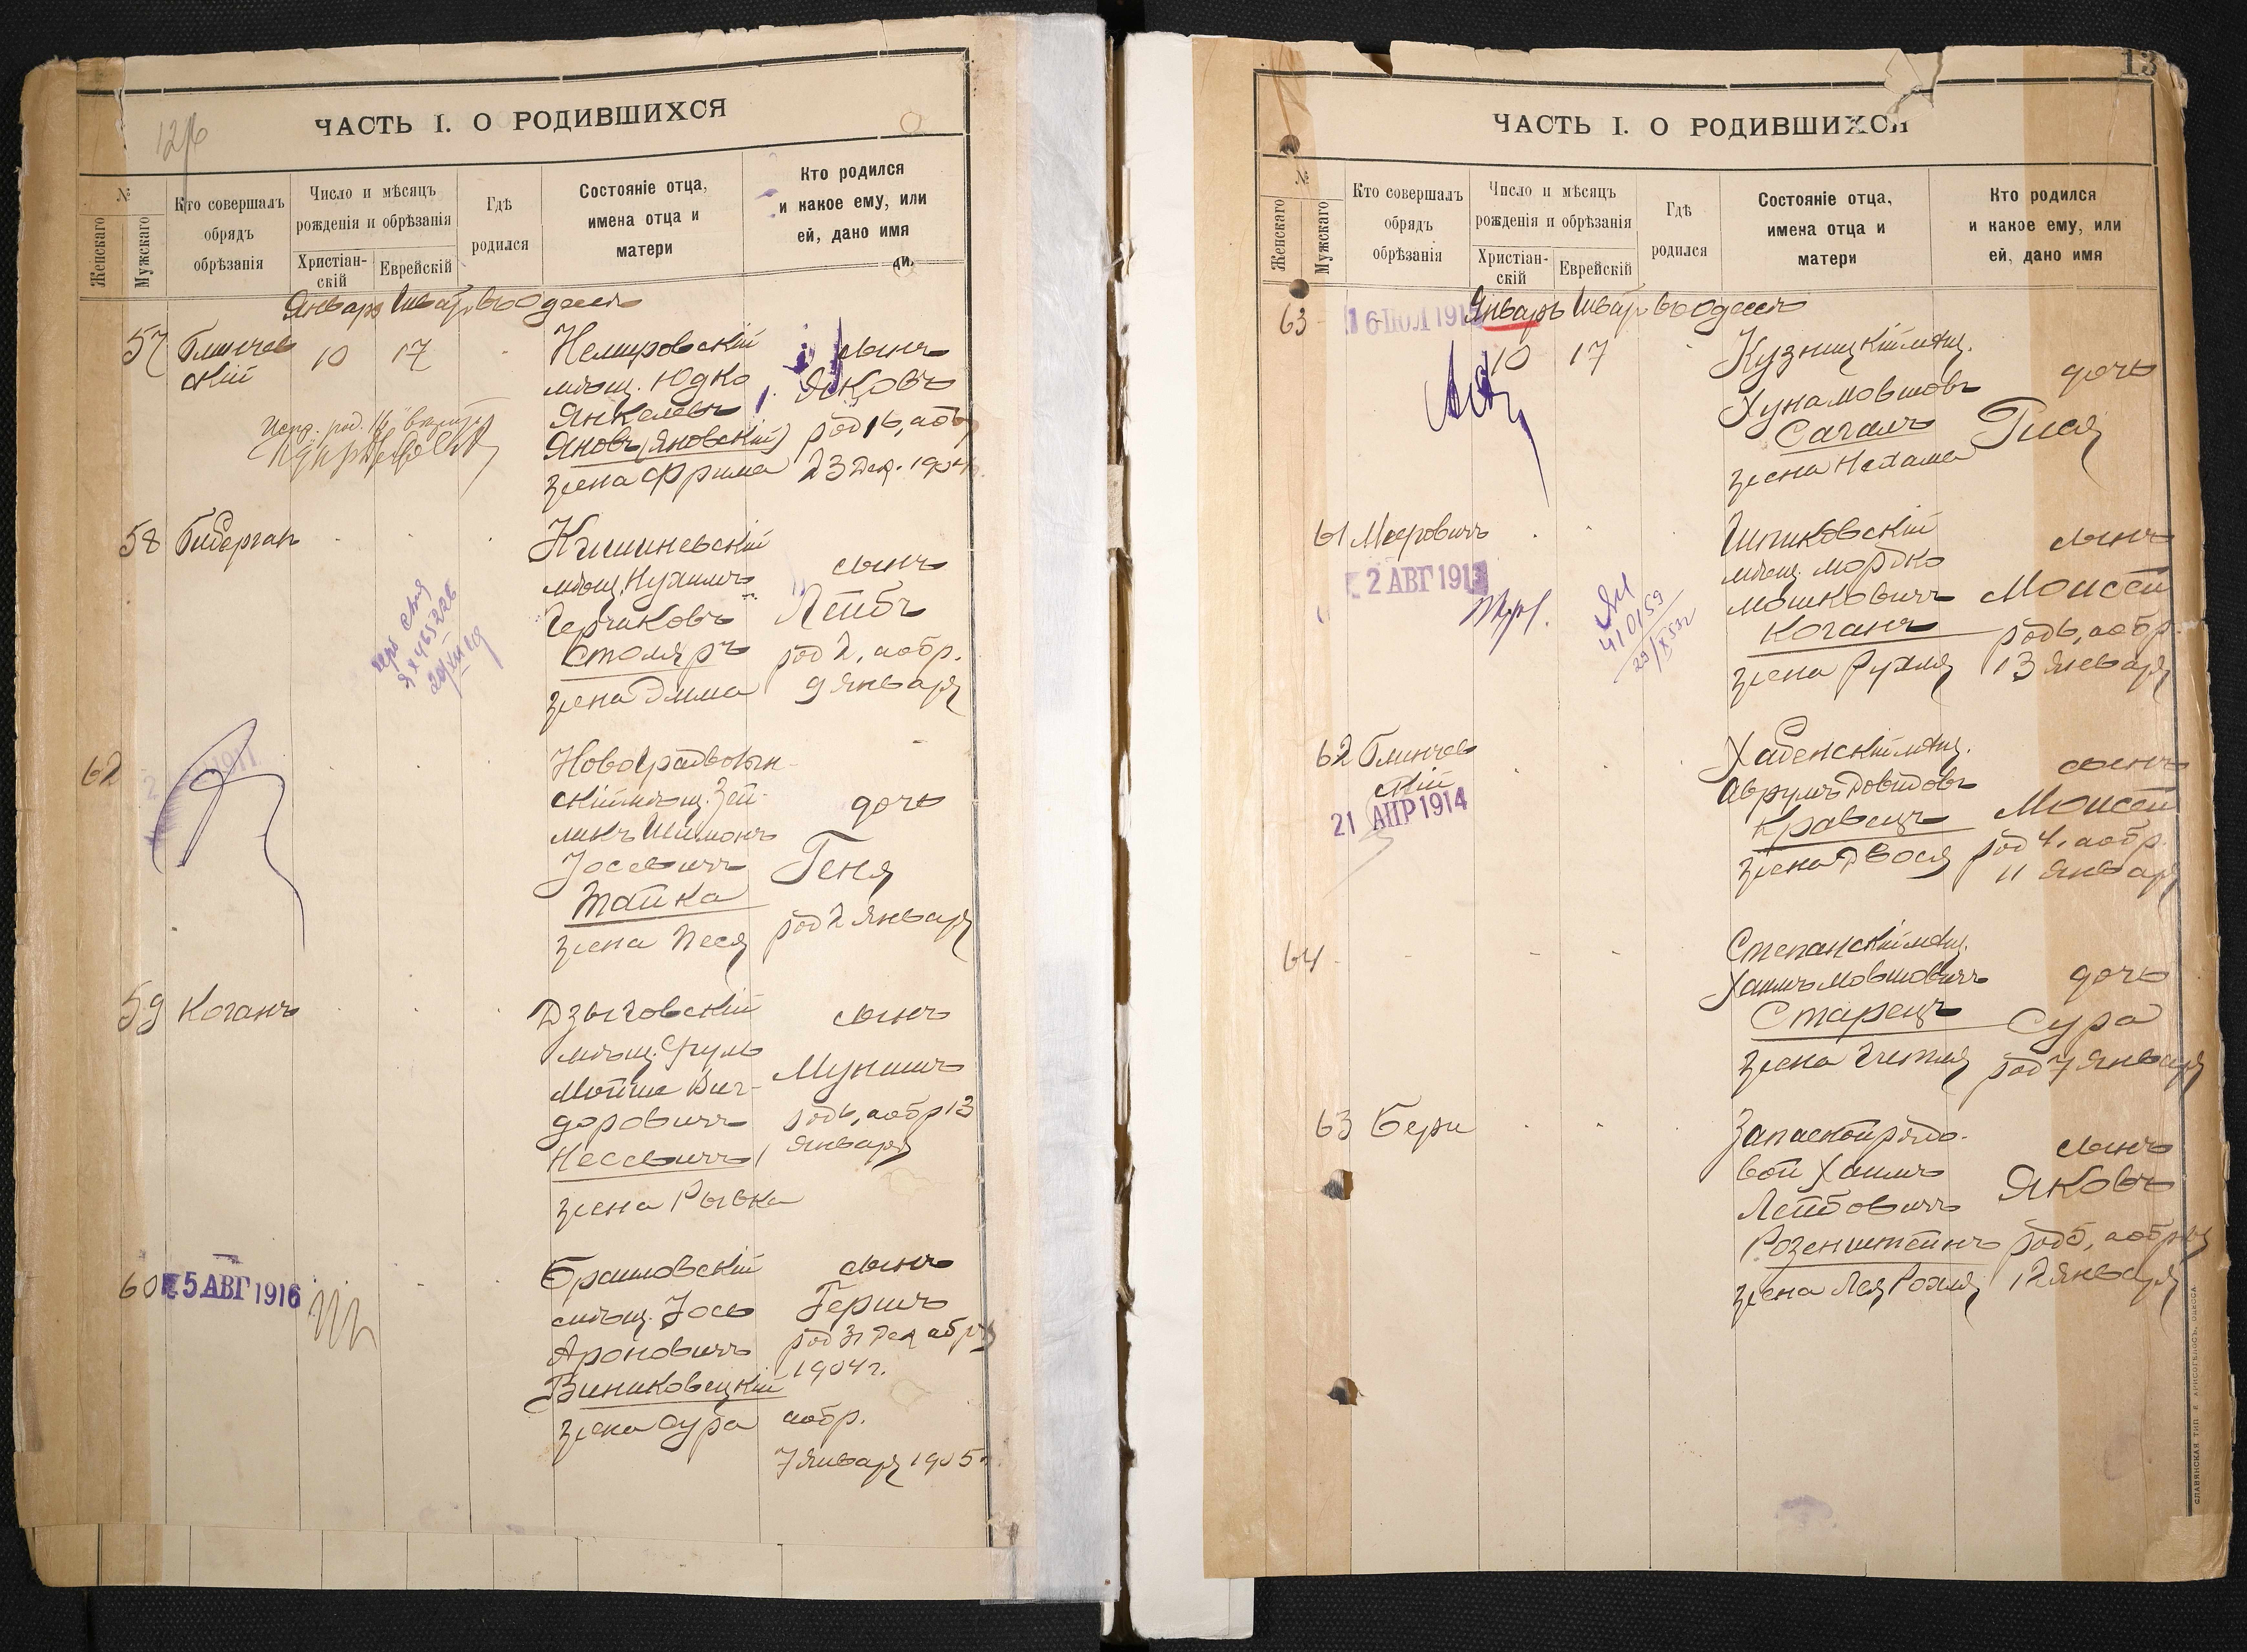 12
ЧАСТЬ I. О РОДИВШИХСЯ
№
Женскаго
Мужскаго
Кто совершалъ
обрядъ
обрѣзанія
Число и мѣсяцъ
рожденія и обрѣзанія
Христіан-
скій
Еврейскій
Гдѣ
родился
Состояніе отца,
имена отца и
матери
Кто родился
и какое ему, или
ей, дано имя
Январь Шват въ Одессѣ
57 Блинчев
скій
10 17
Немировскій
мѣщ. Юдко
Янкелевъ
Яновъ (Яновскій)
жена Фрима
сынъ
Яковъ
род 16, а обр
23 Дек. 1904
58 Бидерган
Кишиневскій
мѣщ. Нухимъ
Гершковъ
Столяръ
жена Эмма
сынъ
Лейбъ
род 2, а обр.
9 Января
62
Новоградволын-
скій мѣщ. Зей-
ликъ Шимонъ
Іосевичъ
Тайка
жена Песя
дочь
Геня
род 2 Января
59 Коганъ
Дзыговскій
мѣщ. Сруль
Мойше Виг-
доровичъ
Несевичъ
жена Рывка
сынъ
Мунишъ
род 6, а обр 13
Января
60
5 АВГ 1916
Браиловскій
мѣщ. Іось
Ароновичъ
Виниковецкій
жена Сура
сынъ
Гершъ
род 31 Декабря
1904 г.
а обр.
7 Января 1905
13
ЧАСТЬ I. О РОДИВШИХСЯ
№
Женскаго
Мужскаго
Кто совершалъ
обрядъ
обрѣзанія
Число и мѣсяцъ
рожденія и обрѣзанія
Христіан-
скій
Еврейскій
Гдѣ
родился
Состояніе отца,
имена отца и
матери
Кто родился
и какое ему, или
ей, дано имя
Январь Шват въ Одессѣ
63
10 17
Кузницкій мѣщ.
Хуна Мовшовъ
Сагалъ
жена Нехама
дочь
Гися
61 Мееровичъ
2 АВГ 1913
410159
Шпиковскій
мѣщ. Мордко
Мошковичъ
Коганъ
жена Рухля
сынъ
Моисей
род 6, а обр.
13 Января
62 Блинчев
скій
21 АПР 1914
Хабенскій мѣщ.
Аврумъ Довидовъ
Кравецъ
жена Двося
сынъ
Моисей
род 4, а обр.
11 Января
64
Степанскій мѣщ.
Хаимъ Мовшовичъ
Старецъ
жена
дочь
Сура
род 7 Января
63 Бери
Запасной рядо-
вой Хаимъ
Лейбовичъ
Розенштейнъ
жена Лея Рохля
сынъ
Яковъ
род 5, а обр
12 Января
СЛАВЯНСКАЯ ТИП. Е. ХРИСОГЕЛОСЪ, ОДЕССА